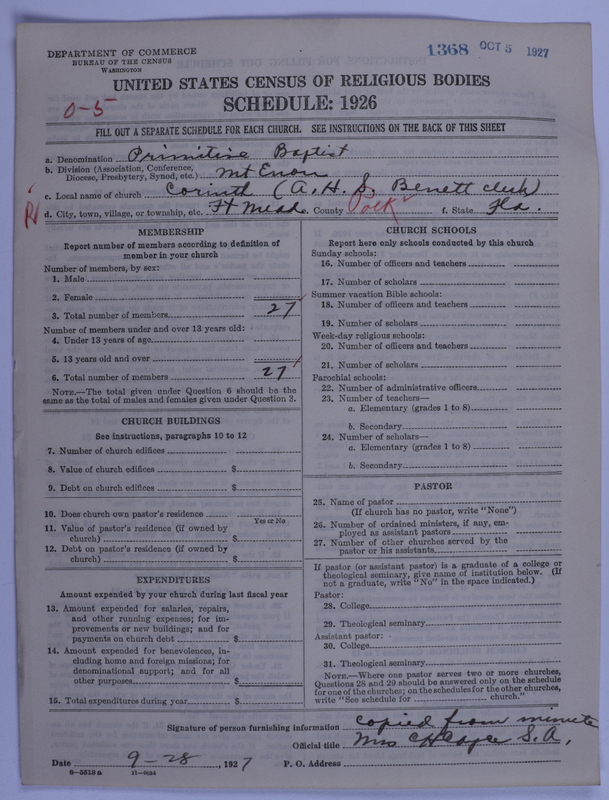 DEPARTMENT OF COMMERCE
BUREAU OF THE CENSUS
WASHINGTON
1368 OCT 5 1927
UNITED STATES CENSUS OF RELIGIOUS BODIES
SCHEDULE: 1926
0-5
FILL OUT A SEPARATE SCHEDULE FOR EACH CHURCH. SEE INSTRUCTIONS ON THE BACK OF THIS SHEET
a. Denomination Primitive Baptist
b. Division (Association, Conference, Diocese, Presbytery, Synod, etc.) Mt Enon
c. Local name of church Corinth (A. H. S. Benett club)
d. City, town, village, or township, etc. Ft Mead County Polk f. State Fla.
MEMBERSHIP
Report number of members according to definition of
member in your church
Number of members, by sex:
1. Male
2. Female
3. Total number of members 27
Number of members under and over 13 years old:
4. Under 13 years of age
5. 13 years old and over
6. Total number of members 27
NOTE.—The total given under Question 6 should be the
same as the total of males and females given under Question 3.
CHURCH BUILDINGS
See instructions, paragraphs 10 to 12
7. Number of church edifices
8. Value of church edifices $
9. Debt on church edifices $
10. Does church own pastor's residence
Yes or No
11. Value of pastor's residence (if owned by
church) $
12. Debt on pastor's residence (if owned by
church) $
EXPENDITURES
Amount expended by your church during last fiscal year
13. Amount expended for salaries, repairs,
and other running expenses; for im-
provements or new buildings; and for
payments on church debt $
14. Amount expended for benevolences, in-
cluding home and foreign missions; for
denominational support; and for all
other purposes $
15. Total expenditures during year $
CHURCH SCHOOLS
Report here only schools conducted by this church
Sunday schools:
16. Number of officers and teachers
17. Number of scholars
Summer vacation Bible schools:
18. Number of officers and teachers
19. Number of scholars
Week-day religious schools:
20. Number of officers and teachers
21. Number of scholars
Parochial schools:
22. Number of administrative officers
23. Number of teachers—
a. Elementary (grades 1 to 8)
b. Secondary
24. Number of scholars—
a. Elementary (grades 1 to 8)
b. Secondary
PASTOR
25. Name of pastor
(If church has no pastor, write "None")
26. Number of ordained ministers, if any, em-
ployed as assistant pastors
27. Number of other churches served by the
pastor or his assistants
If pastor (or assistant pastor) is a graduate of a college or
theological seminary, give name of institution below. (If
not a graduate, write "No" in the space indicated.)
Pastor:
28. College
29. Theological seminary
Assistant pastor:
30. College
31. Theological seminary
NOTE.—Where one pastor serves two or more churches,
Questions 28 and 29 should be answered only on the schedule
for one of the churches; on the schedules for the other churches,
write "See schedule for church."
Signature of person furnishing information copied from minute
Official title Mrs C H Cayce S. A.
Date 9-28, 1927 P. O. Address
8-5518a 11-9034